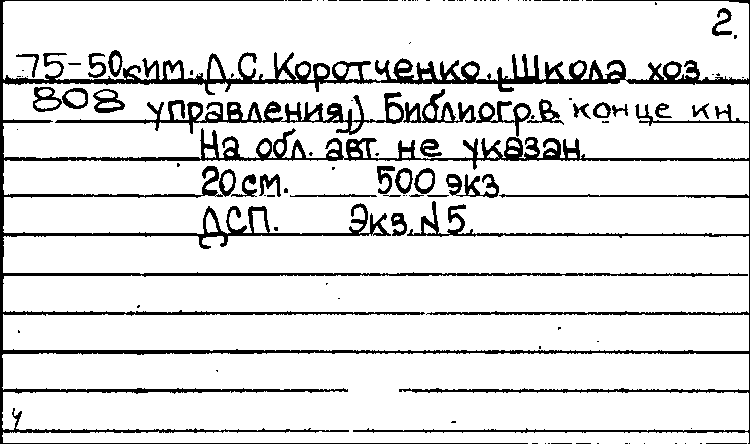 2.
75-50к им. Д.С. Коротченко. (Школа хоз.
808 управления). Библиогр. в конце кн.
На обл. авт. не указан.
20 см. 500 экз.
ДСП. Экз. N 5.